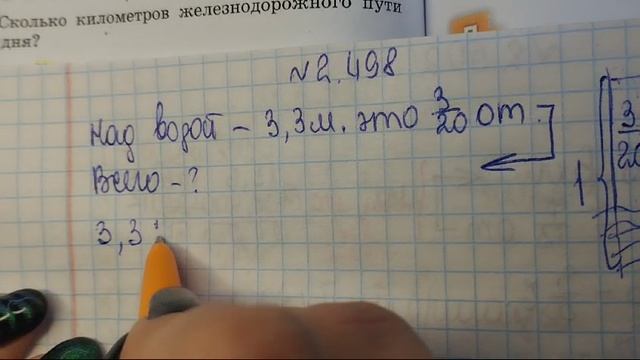 Сколько километров железнодорожного пути
дня?
№2.498
Над водой – 3,3м. это 3/20 от
Всего – ?
3,3 :
1
3/20